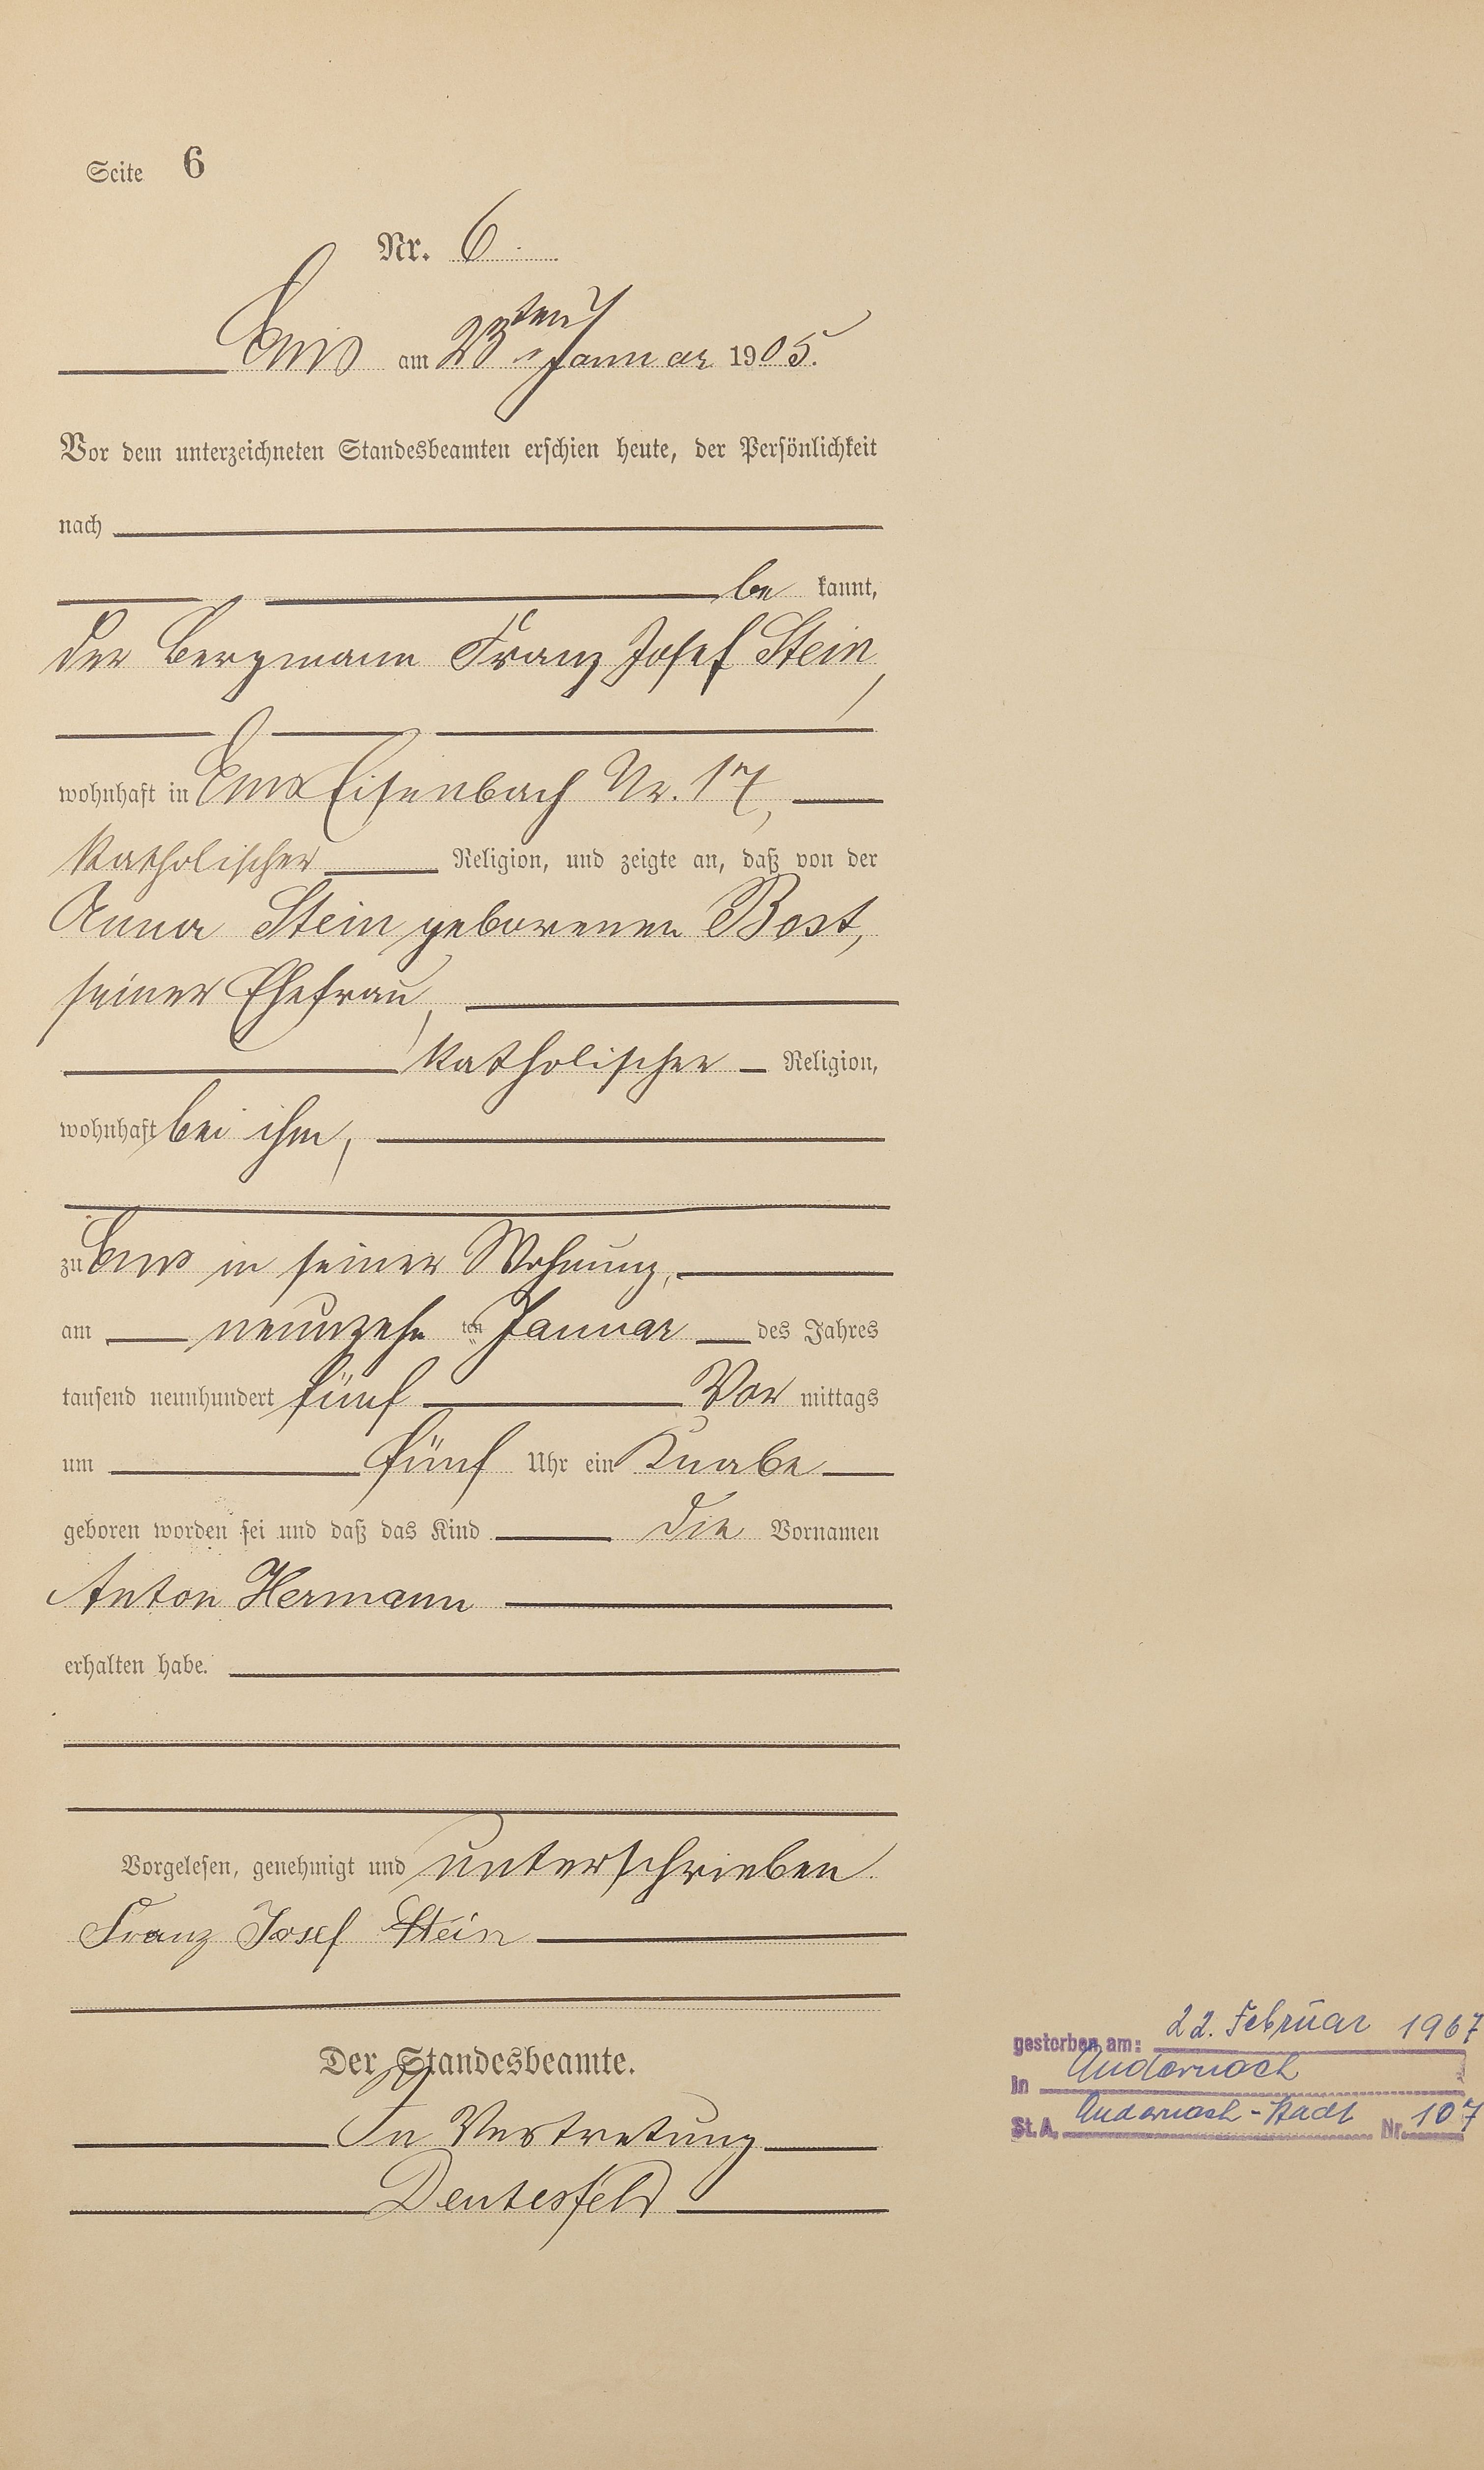 Seite 6
Nr. 6.
Ems am 23ten Januar 1905.
Vor dem unterzeichneten Standesbeamten erschien heute, der Persönlichkeit
nach
be kannt,
der Bergmann Franz Josef Stein,
wohnhaft in Ems Eisenbach Nr. 17,
katholischer Religion, und zeigte an, daß von der
Anna Stein geborenen Bost,
seiner Ehefrau,
katholischer Religion,
wohnhaft bei ihm,
zu Ems in seiner Wohnung,
am neunzehn ten Januar des Jahres
tausend neunhundert fünf Vor mittags
um fünf Uhr ein Knabe
geboren worden sei und daß das Kind die Vornamen
Anton Hermann
erhalten habe.
Vorgelesen, genehmigt und unterschrieben
Franz Josef Stein
Der Standesbeamte.
In Vertretung
Deutesfeld
gestorben am: 22. Februar 1967
in Andernach
St. A. Andernach-Stadt Nr. 107